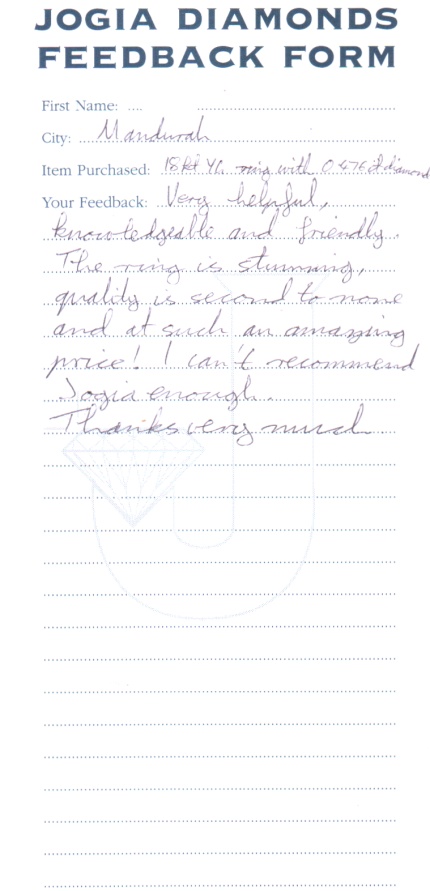 JOGIA DIAMONDS
FEEDBACK FORM
First Name: ....
City: Mandurah
Item Purchased: 18kt YG ring with 0.47ct diamond
Your Feedback: Very helpful,
knowledgeable and friendly.
The ring is stunning,
quality is second to none
and at such an amazing
price! I can't recommend
Jogia enough.
Thanks very much